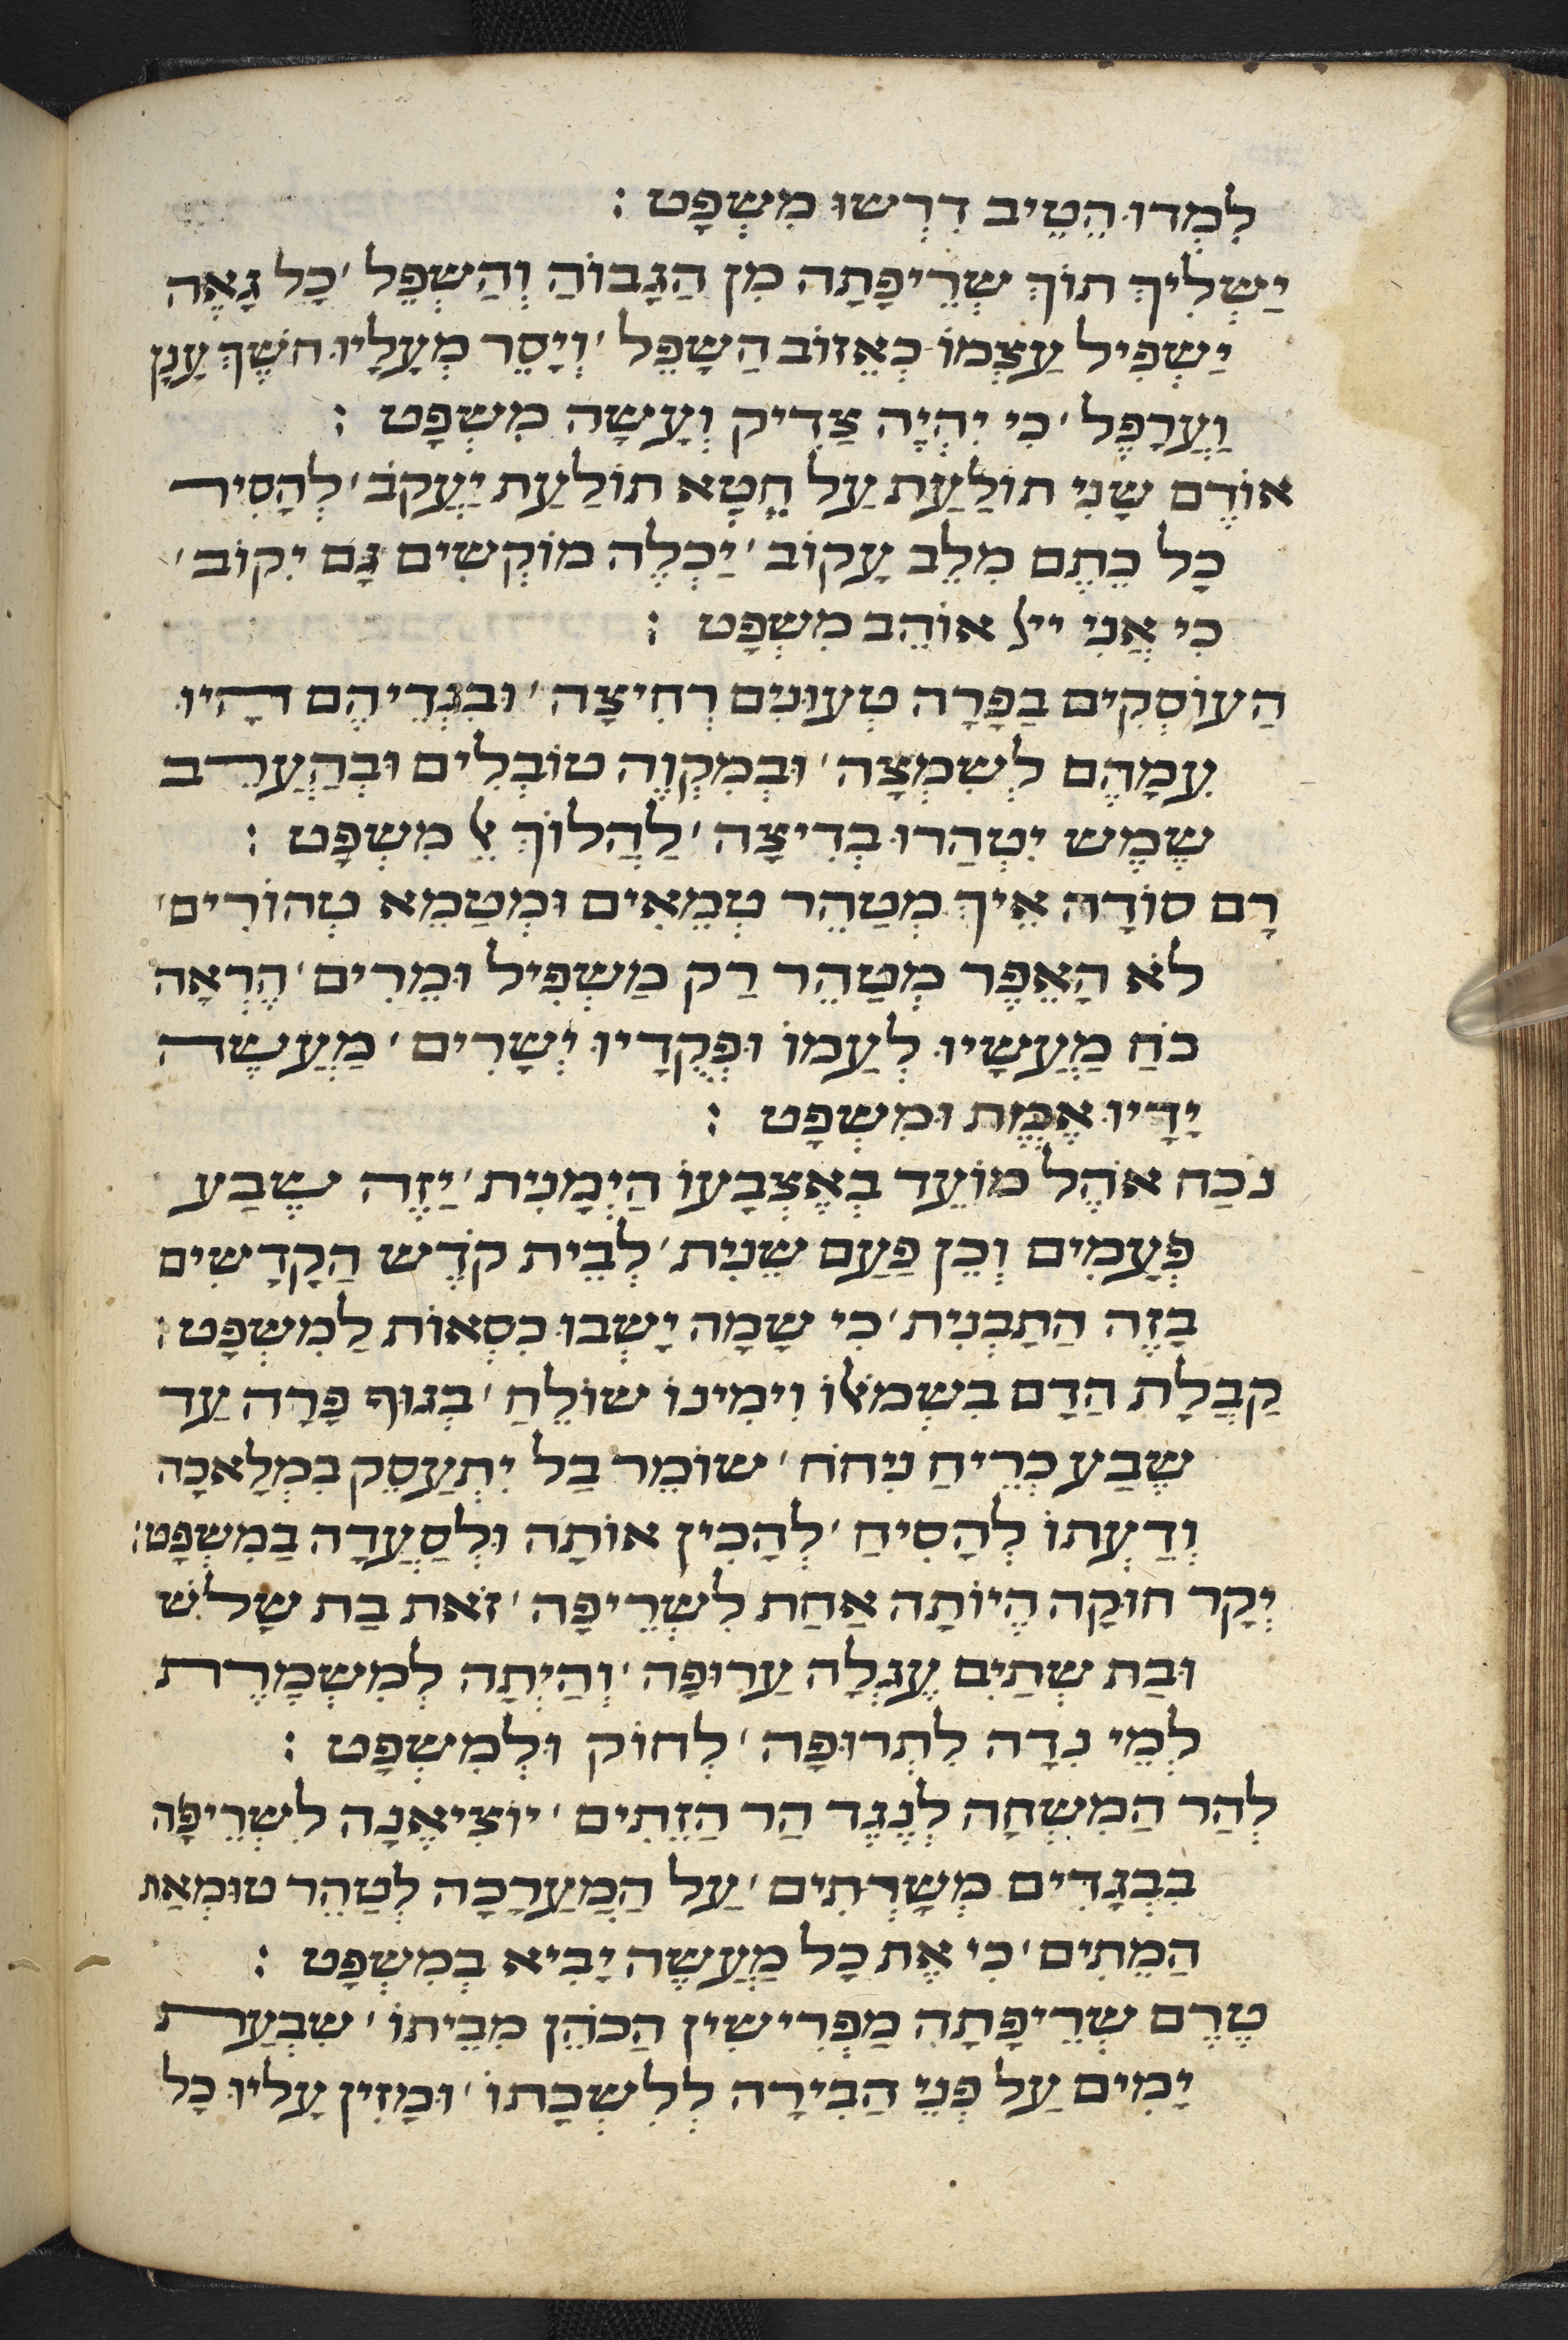 לִמְדוּ הֵטֵיב דִרְשוּ מִשְפָט :
יַשְלִיךְ תוֹךְ שְרֵיפָתָה מִן הַגָבוֹהַ וְהַשְפֵל ׳ כָל גֵאֶה
יַשְפִיל עַצְמוֹ כְאֵזוֹב הַשָפֵל ׳ וְיָסֵר מְעָלָיו חשֶךְ עָנָן
וַעֲרָפֶל ׳ כִי יִהְיֶה צַדִיק וְעָשָה מִשְפָט :
אוֹדֶם שָנִי תוֹלַעַת עַל חֵטְא תוֹלַעַת יַעֲקֹב ׳ לְהָסִיר
כָל כֶתֶם מִלֵב עָקוֹב ׳ יְכַלֶה מוֹקְשִים גָם יִקוֹב ׳
כִי אֲנִי ייל אוֹהֵב מִשְפָט :
הַעוֹסְקִים בַפָרָה טְעוּנִים רְחִיצָה ׳ וּבִגְדֵיהֶם הָיוּ
עִמָהֶם לְשִמְצָה ׳ וּבְמִקְוֶה טוֹבְלִים וּבְהַעֲרִב
שֶמֶש יִטְהַרוּ בְדִיצָה ׳ לַהֲלוֹךְ אֶל מִשְפָט :
רָם סוֹדָהּ אֵיךְ מְטַהֵר טְמֵאִים וּמְטַמֵא טְהוֹרִים ׳
לֹא הָאֵפֶר מְטַהֵר רַק מַשְפִיל וּמֵרִים ׳ הֶרְאָה
כֹחַ מַעֲשָיו לְעַמוֹ וּפְקֻדָיו יְשָרִים ׳ מַעֲשֵה
יָדָיו אֱמֶת וּמִשְפָט :
נֹכַח אֹהֶל מוֹעֵד בְאֶצְבָעוֹ הַיְמָנִית ׳ יַזֶה שֶבַע
פְעָמִים וְכֵן פַעַם שֵנִית ׳ לְבֵית קֹדֶש הַקָדָשִים
בָזֶה הַתַבְנִית ׳ כִי שָמָה יָשְבוּ כִסְאוֹת לַמִשְפָט :
קַבֲלָת הַדָם בִשְמֹאלוֹ וִימִינוֹ שוֹלֵחַ ׳ בְגוּף פָרָה עַד
שֶבַע כְרֵיחַ נִיחֹחַ ׳ שוֹמֵר בַל יִתְעַסֵק בִמְלָאכָה
וְדַעְתוֹ לְהָסִיחַ ׳ לְהָכִין אוֹתָה וּלְסַעֲדָה בַמִשְפָט :
יְקָר חוּקָה הֱיוֹתָה אַחַת לִשְרֵיפָה ׳ זֹאת בַת שָלֹש
וּבַת שְתַיִם עֶגְלָה עַרוּפָה ׳ וְהַיְתָה לְמִשְמֶרֶת
לְמֵי נִדָה לִתְרוּפָה ׳ לְחוֹק וּלְמִשְפָט :
לְהַר הַמִשְחָה לְנֶגֶד הַר הַזֵתִים ׳ יוֹצִיאֶנָה לִשְרֵיפָה
בִבְגָדִים מְשָרְתִים ׳ עַל הַמַעֲרָכָה לְטַהֵר טוּמְאַת
הַמֵתִים ׳ כִי אֶת כָל מַעֲשֶה יָבִיא בְמִשְפָט :
טֶרֶם שְרֵיפָתָה מַפְרִישִין הַכֹהֵן מִבֵיתוֹ ׳ שִבְעַת
יָמִים עַל פְנֵי הַבִירָה לְלִשְכָתוֹ ׳ וּמָזִין עָלָיו כָל